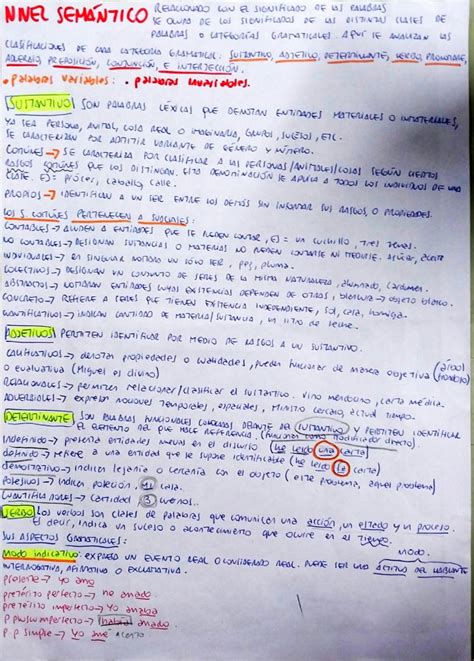 NIVEL SEMÁNTICO RELACIONADO CON EL SIGNIFICADO DE LAS PALABRAS
SE OCUPA DE LOS SIGNIFICADOS DE LAS DISTINTAS CLASES DE
PALABRAS O CATEGORÍAS GRAMATICALES. AQUÍ SE ANALIZAN LAS
CLASIFICACIONES DE CADA CATEGORÍA GRAMATICAL: SUSTANTIVO, ADJETIVO, DETERMINANTE, VERBO, PRONOMBRE,
ADVERBIO, PREPOSICIÓN, CONJUNCIÓN, E INTERJECCIÓN.
• palabras variables: • palabras invariables.
SUSTANTIVO SON PALABRAS LÉXICAS QUE DENOTAN ENTIDADES MATERIALES O INMATERIALES,
YA SEA PERSONA, ANIMAL, COSA REAL O IMAGINARIA, GRUPOS, SUJETOS, ETC.
SE CARACTERIZAN POR ADMITIR VARIANTE DE GÉNERO Y NÚMERO.
COMUNES → SE CARACTERIZA POR CLASIFICAR A LAS PERSONAS/ANIMALES/COSAS SEGÚN CIERTOS
RASGOS COMUNES QUE LOS DISTINGUAN. ESTA DENOMINACIÓN SE APLICA A TODOS LOS INDIVIDUOS DE UNA
CLASE. EJ: prócer, caballo, calle.
PROPIOS → IDENTIFICAN A UN SER ENTRE LOS DEMÁS SIN INFORMAR SUS RASGOS O PROPIEDADES.
LOS S. COMUNES PERTENECEN A SUBCLASES:
CONTABLES → ALUDEN A ENTIDADES QUE SE PUEDEN CONTAR, EJ = UN CUCHILLO, TRES
NO CONTABLES → DESIGNAN SUSTANCIAS O MATERIAS NO PUEDEN CONTARSE NI MEDIRSE. AZÚCAR, ACEITE
INDIVIDUALES → EN SINGULAR NOTARÁN UN SÓLO SER, pez, pluma.
COLECTIVOS → DESIGNAN UN CONJUNTO DE SERES DE LA MISMA NATURALEZA, alumnado, cardumen.
ABSTRACTOS → NOTARÁN ENTIDADES CUYAS EXISTENCIAS DEPENDEN DE OTRAS, blancura → objeto blanco.
CONCRETO → REFIERE A SERES QUE TIENEN EXISTENCIA INDEPENDIENTE, SOL, CASA, hormiga.
CUANTIFICATIVOS → INDICAN CANTIDAD DE MATERIA/SUSTANCIA, un litro de leche.
ADJETIVOS PERMITEN IDENTIFICAR POR MEDIO DE RASGOS A UN SUSTANTIVO.
CALIFICATIVOS → denotan propiedades o cualidades, pueden funcionar de manera objetiva (árbol frondoso)
o evaluativa (Miguel es divino)
RELACIONALES → permiten relacionar/clasificar el sustantivo. Vino mendocino, carta médica.
ADVERBIALES → expresan nociones temporales, espaciales, Ministro cercano, actual tiempo.
DETERMINANTE SON PALABRAS FUNCIONALES COLOCADAS DELANTE DEL SUSTANTIVO Y PERMITEN IDENTIFICAR
EL ELEMENTO DEL QUE HACE REFERENCIA. (funcionan como modificador directo)
indefinido → presenta entidades nuevas en el discurso (he leído una carta)
definido → refiere a una entidad que se supone identificable (he leído La carta)
demostrativo → indican lejanía o cercanía con el objeto (este problema, aquel problema)
posesivos → indican posesión, Mi casa.
CUANTIFICADORES → Cantidad, 3 cuervos..
VERBO Los verbos son clases de palabras que comunican una acción, un estado y un proceso.
es decir, indica un suceso o acontecimiento que ocurre en el Tiempo.
SUS ASPECTOS GRAMATICALES: MODO.
Modo indicativo: EXPRESA UN EVENTO REAL O CONSIDERADO REAL. PUEDE SER UNA ACTITUD DEL HABLANTE
INTERROGATIVA, AFIRMATIVA O EXCLAMATIVA.
presente → Yo amo
pretérito perfecto → he amado.
pretérito imperfecto → Yo amaba
P. pluscuamperfecto → había amado.
p. p simple → Yo amé